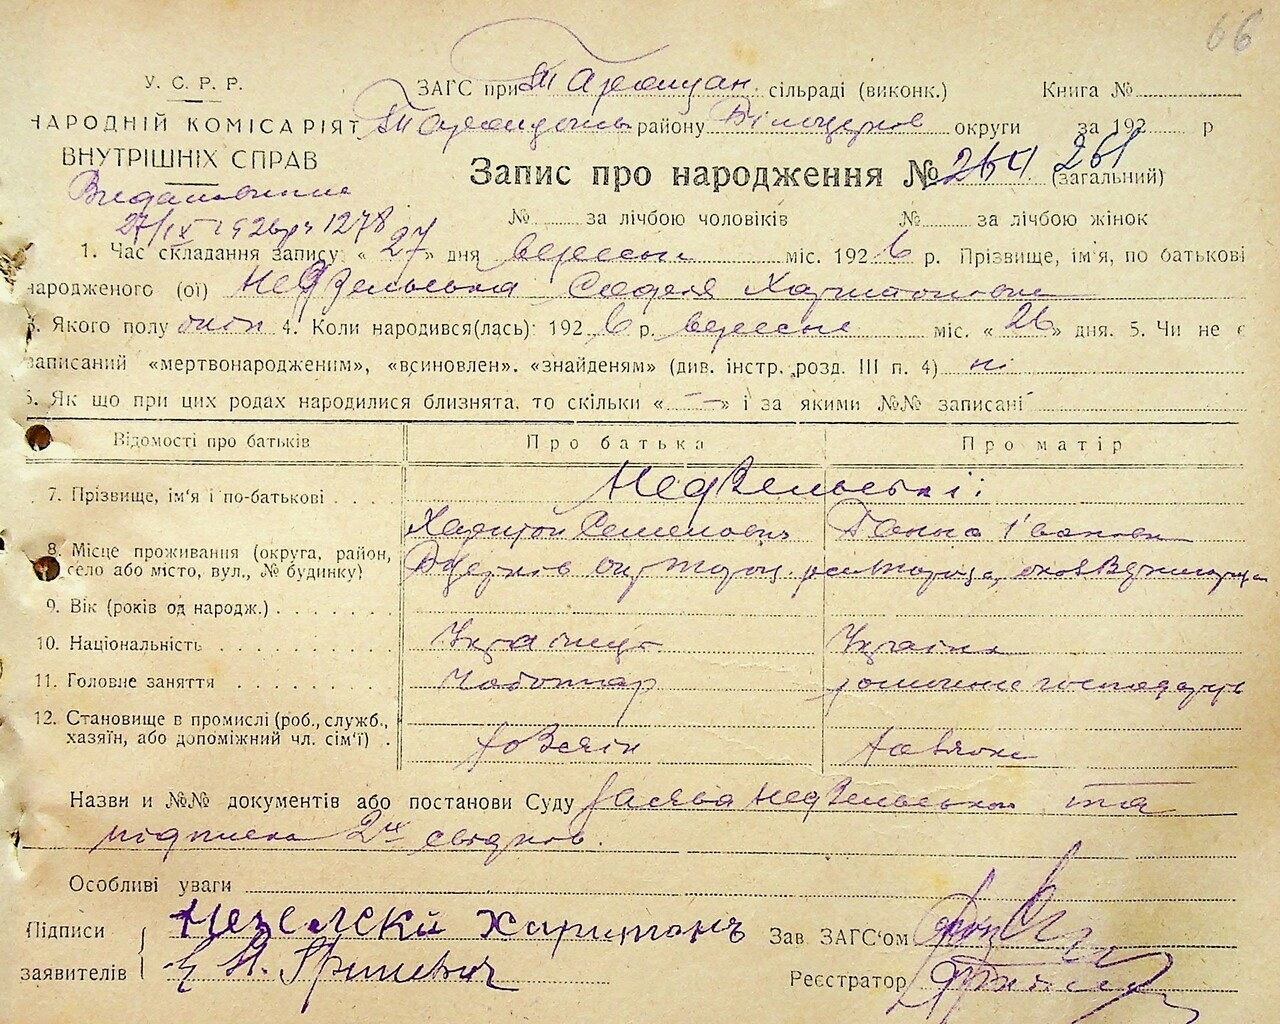 66
У. С. Р. Р.
НАРОДНІЙ КОМІСАРІЯТ
ВНУТРІШНІХ СПРАВ
27/IX 1926 р № 1278
ЗАГС при Таращан. сільраді (виконк.) Книга №
району Білоцерков округи за 192 р
Запис про народження № 264 261 (загальний)
№ за лічбою чоловіків № за лічбою жінок
1. Час складання запису: « 27 » дня вересня міс. 192 6 р. Прізвище, ім'я, по батькові
народженого (ої) Недзельська Софія Харитоновна
3. Якого полу 4. Коли народився(лась): 192 6 р. вересня міс. « 26 » дня. 5. Чи не є
записаний «мертвонародженим», «всиновлен». «знайденям» (див. інстр. розд. III п. 4) ні
6. Як що при цих родах народилися близнята. то скільки « — » і за якими №№ записані
Відомості про батьків Про батька Про матір
7. Прізвище, ім'я і по-батькові Недзельські:
Харитон Семенович Ганна Івановна
8. Місце проживання (округа, район,
село або місто, вул., № будинку)
9. Вік (років од народж.)
10. Національність Українець Українка
11. Головне заняття Чоботар домашнє господарство
12. Становище в промислі (роб., служб.,
хазяїн, або допоміжний чл. сім'ї) Хозяїн Хазяйка
Назви и №№ документів або постанови Суду Заява Недзельського та
підписка 2х свідків.
Особливі уваги
Підписи
заявителів
Незелскй Хаританъ
Гриневич
Зав ЗАГС'ом
Реєстратор